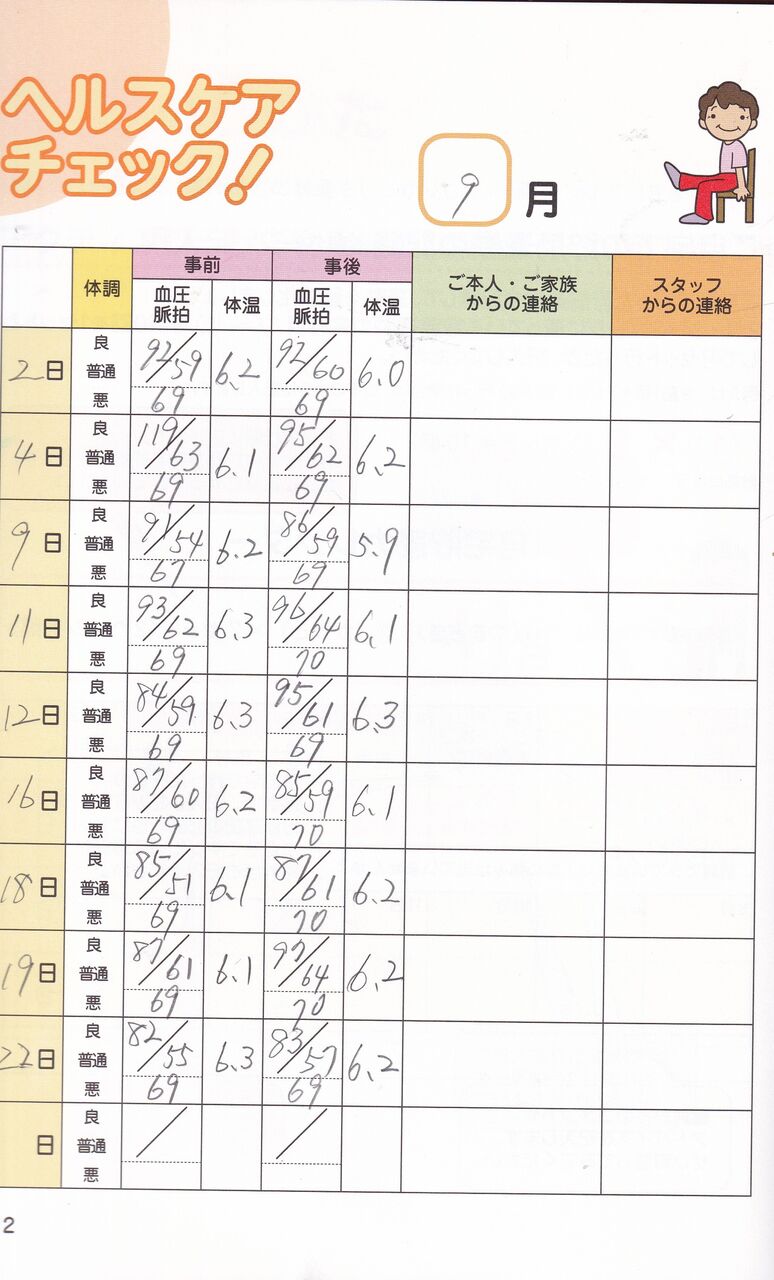 ヘルスケア
チェック!
9月
体調 事前 事後 ご本人・ご家族からの連絡 スタッフからの連絡
血圧 脈拍 体温 血圧 脈拍 体温
2日 良 普通 悪 92/59 69 6.2 92/60 69 6.0
4日 良 普通 悪 119/63 69 6.1 95/62 69 6.2
9日 良 普通 悪 91/54 67 6.2 86/59 69 5.9
11日 良 普通 悪 93/62 69 6.3 96/64 70 6.1
12日 良 普通 悪 84/59 69 6.3 95/61 69 6.3
16日 良 普通 悪 87/60 69 6.2 85/59 70 6.1
18日 良 普通 悪 85/51 69 6.1 87/61 70 6.2
19日 良 普通 悪 87/61 69 6.1 97/64 70 6.2
22日 良 普通 悪 82/55 69 6.3 83/57 69 6.2
日 良 普通 悪 / /
2